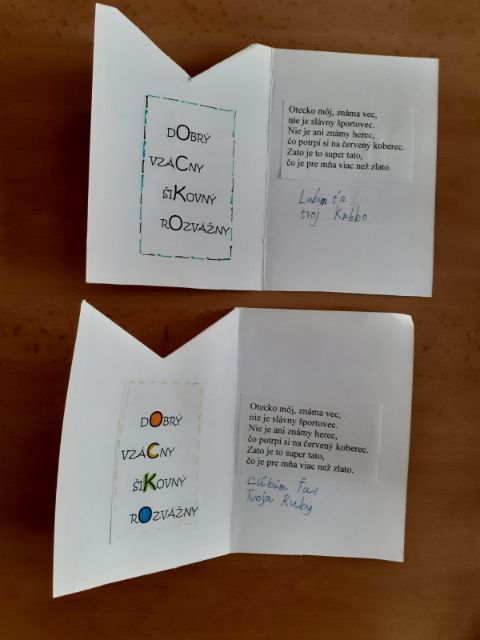 DOBRÝ
VZÁCNY
ŠIKOVNÝ
ROZVÁŽNY
Otecko môj, známa vec,
nie je slávny športovec.
Nie je ani známy herec,
čo potrpí si na červený koberec.
Zato je to super tato,
čo je pre mňa viac než zlato.
Lubim ťa
tvoj Kubko
DOBRÝ
VZÁCNY
ŠIKOVNÝ
ROZVÁŽNY
Otecko môj, známa vec,
nie je slávny športovec.
Nie je ani známy herec,
čo potrpí si na červený koberec.
Zato je to super tato,
čo je pre mňa viac než zlato.
Ľúbim Ťa
Tvoja Ruby